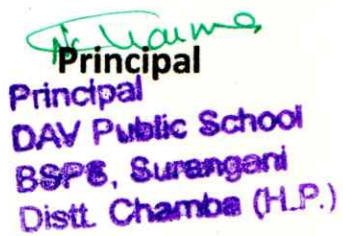 Principal
Principal
DAV Public School
BSPS, Surangani
Distt. Chamba (H.P.)